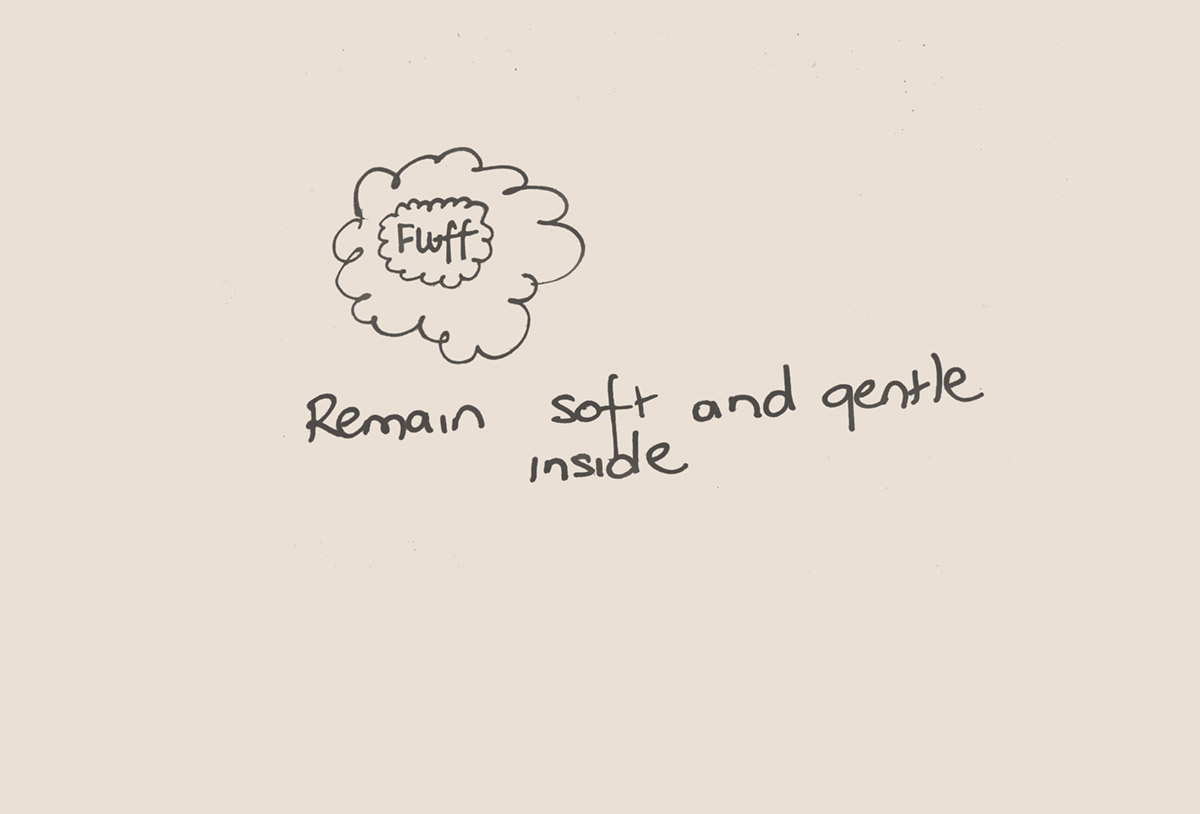 Fluff
Remain soft and gentle
inside